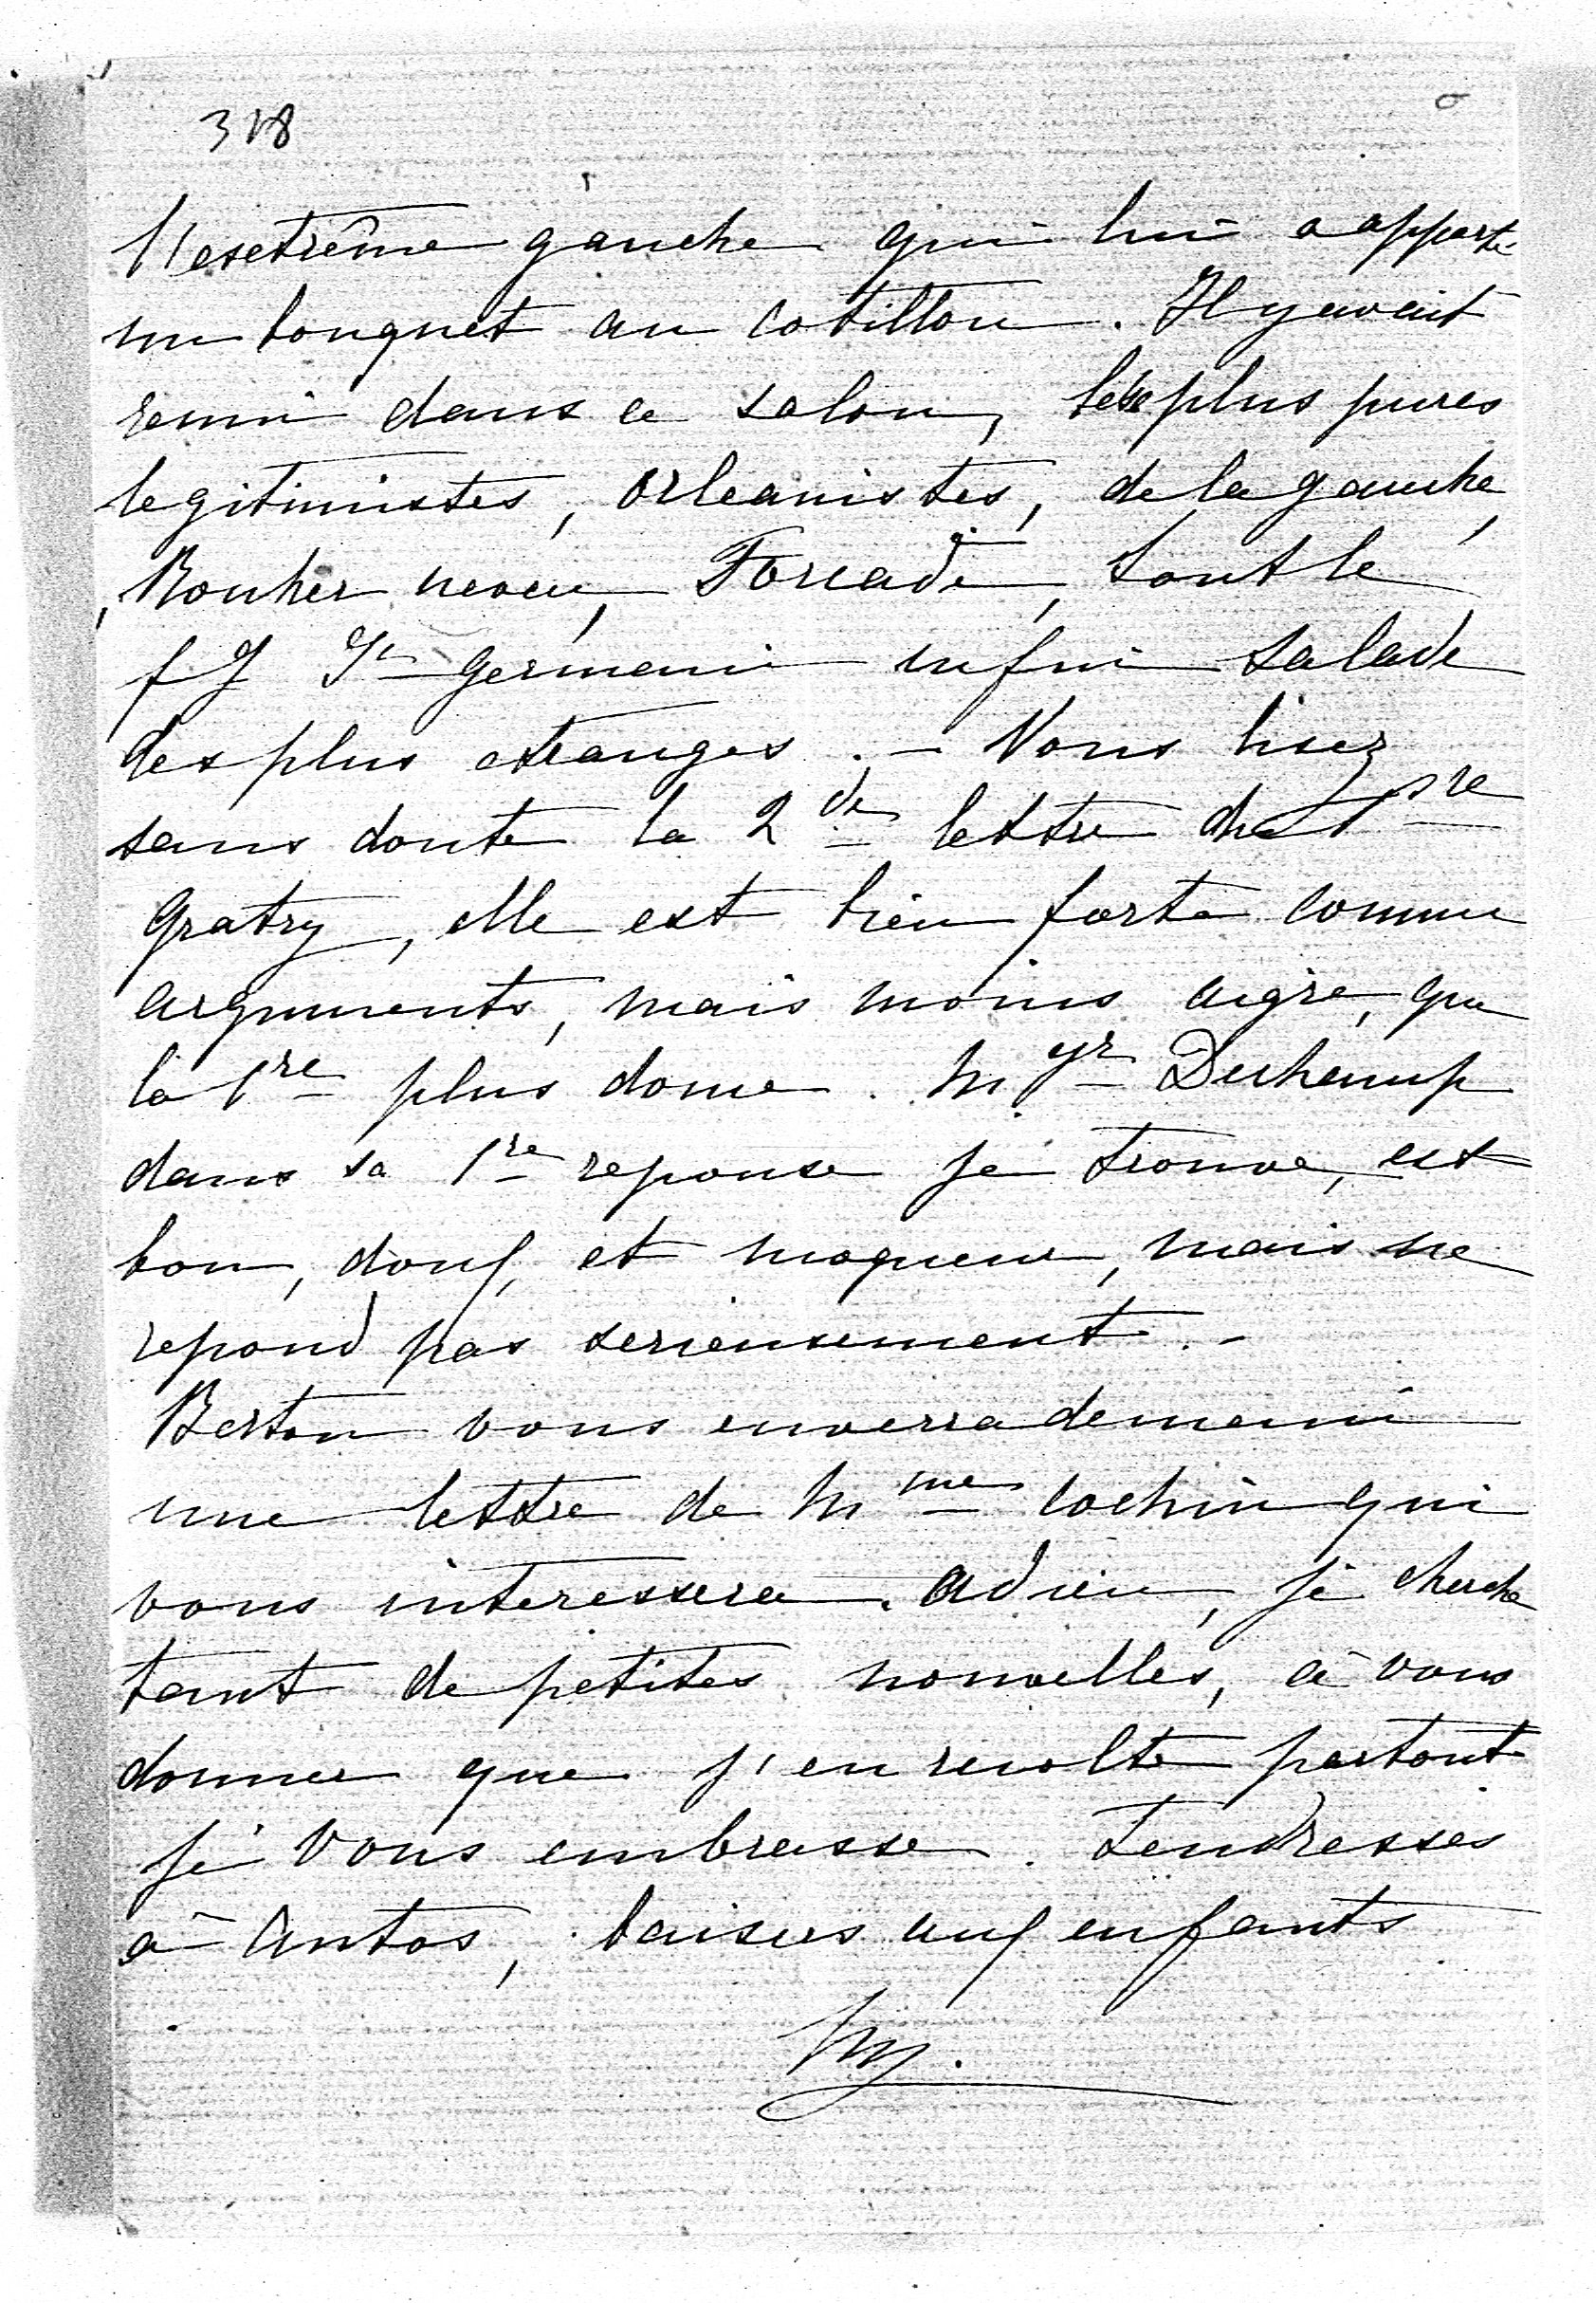 318
l'extrême gauche qui lui a apporté
un bouquet au cotillon. Il y avait
reuni dans ce salon, les plus pures
legitimistes, orleanistes, de la gauche,
Rouher neveu, Forcade, tout le
fg St germain enfin salade
des plus etranges. – Vous lisez
sans doute la 2de lettre du Pre
gratry, elle est bien forte comme
arguments, mais moins aigre, que
la 1re plus douce. Mgr Dechamp
dans sa 1re reponse je trouve, est
bon, doux, et moqueur, mais ne
repond pas serieusement. –
Berton vous enverra demain
une lettre de Mme Cochin qui
vous interessera. adieu, je cherche
tant de petites nouvelles, à vous
donner que j'en recolte partout
je vous embrasse. Tendresses
à Antos, baisers aux enfants